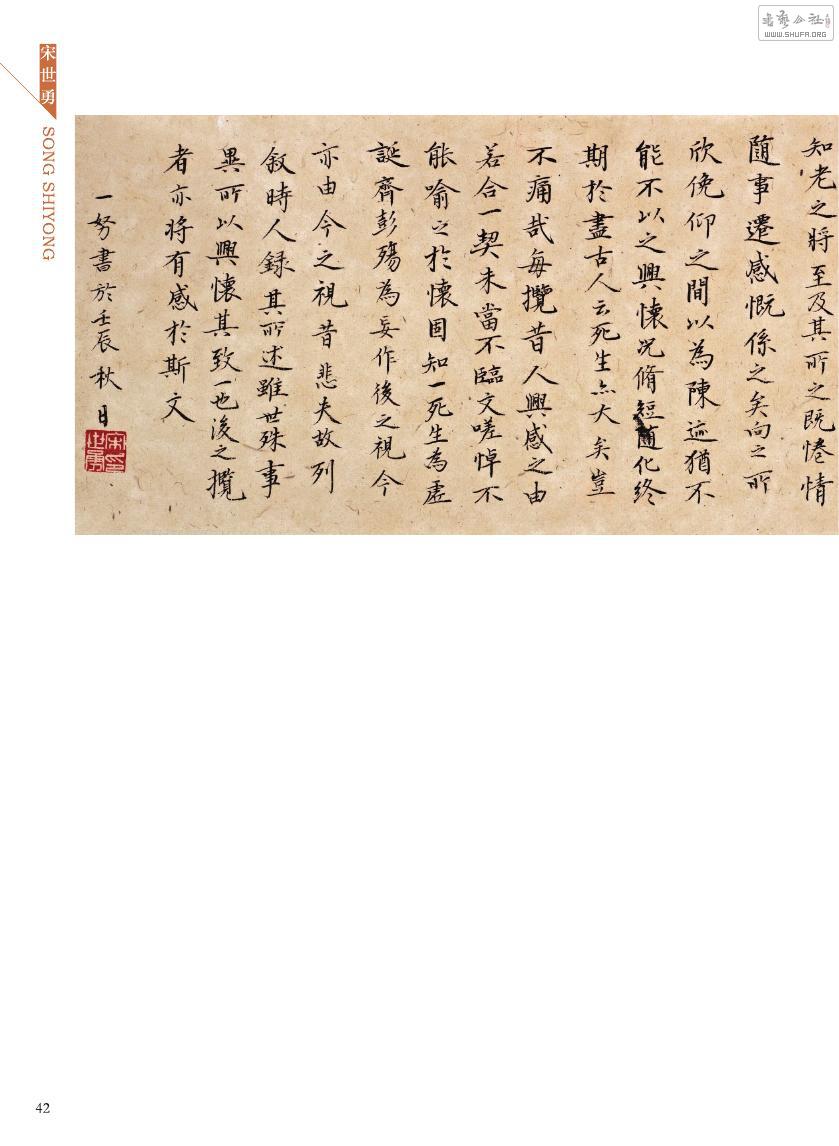 書藝公社
WWW.SHUFA.ORG
宋世勇
SONG SHIYONG
知老之將至及其所之既惓情
随事遷感慨係之矣向之所
欣俛仰之間以為陳迹猶不
能不以之興懷况脩短随化終
期於盡古人云死生亦大矣豈
不痛哉每攬昔人興感之由
若合一契未當不臨文嗟悼不
能喻之於懷固知一死生為虛
誕齊彭殤為妄作後之視今
亦由今之視昔悲夫故列
叙時人録其所述雖世殊事
異所以興懷其致一也後之攬
者亦將有感於斯文
一努書於壬辰秋日
宋世勇印
42